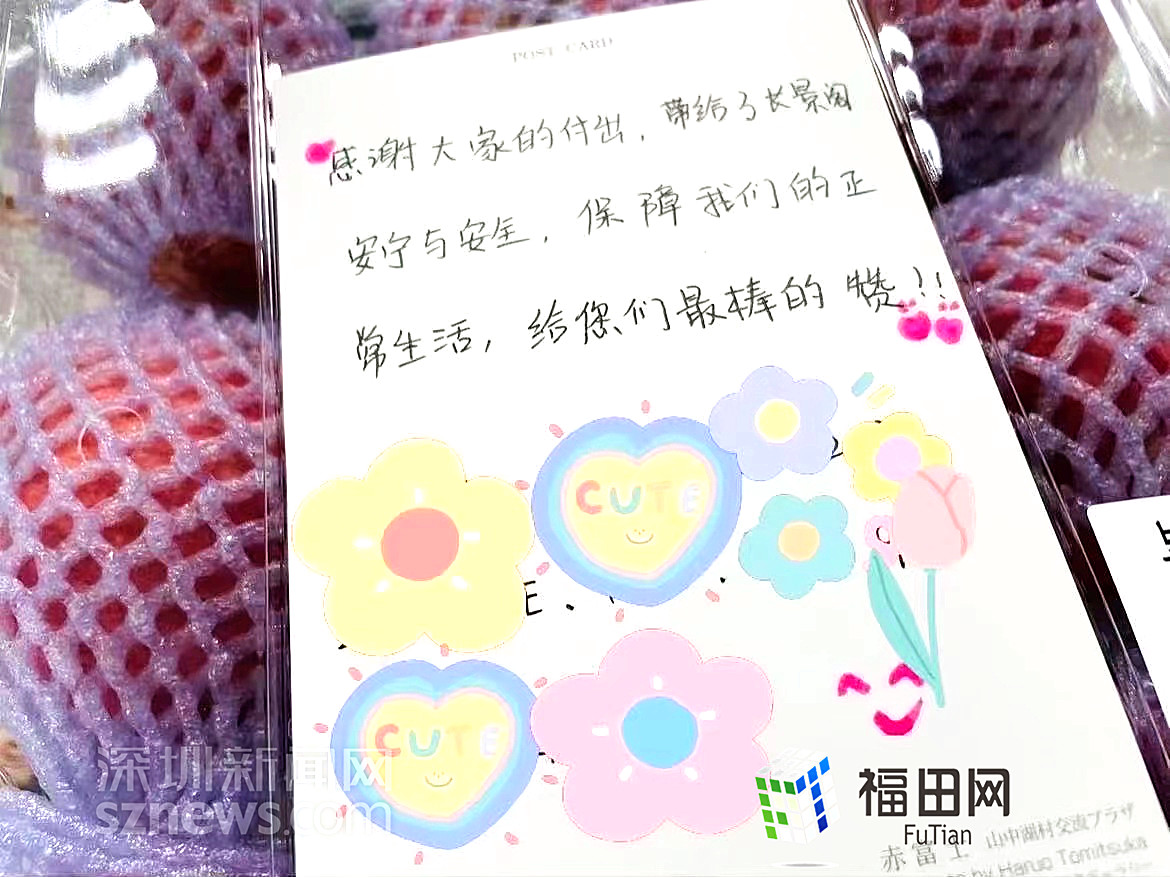 POST CARD
感谢大家的付出，带给了长景阁
安宁与安全，保障我们的正
常生活，给您们最棒的赞!!
CUTE
CUTE
深圳新闻网
sznews.com
福田网
FuTian
赤富士 山中湖村交流プラザ
by Haruo Tomitsuka